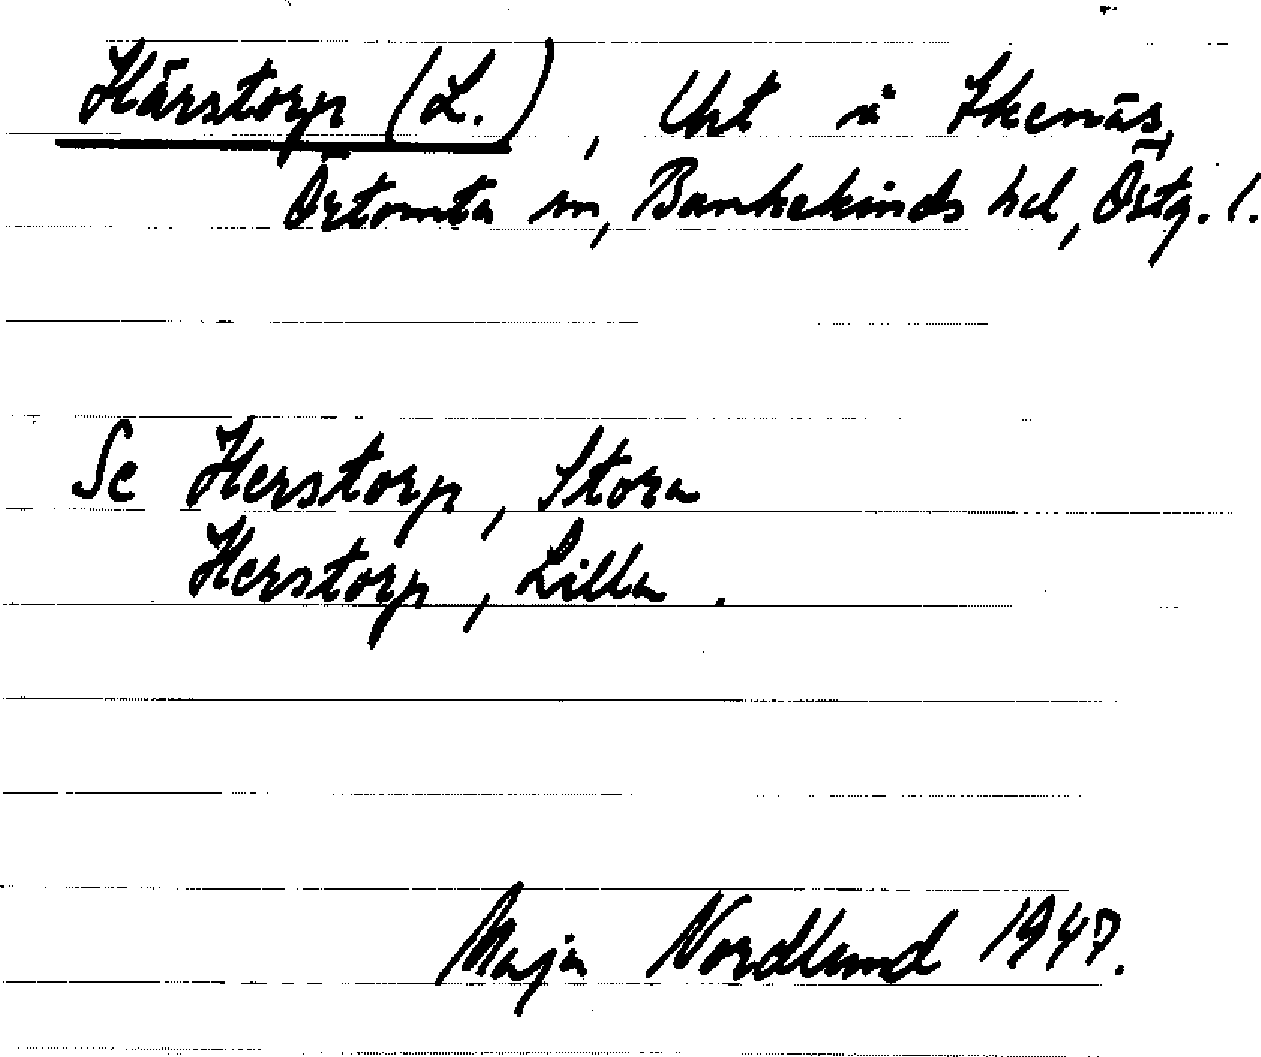 Härstorp (L.), Uht å Skenäs,
Östomta sn, Bankekinds hd, Östg. l.
Se Herstorp, Stora
Herstorp, Lilla.
Maja Nordlund 1947.